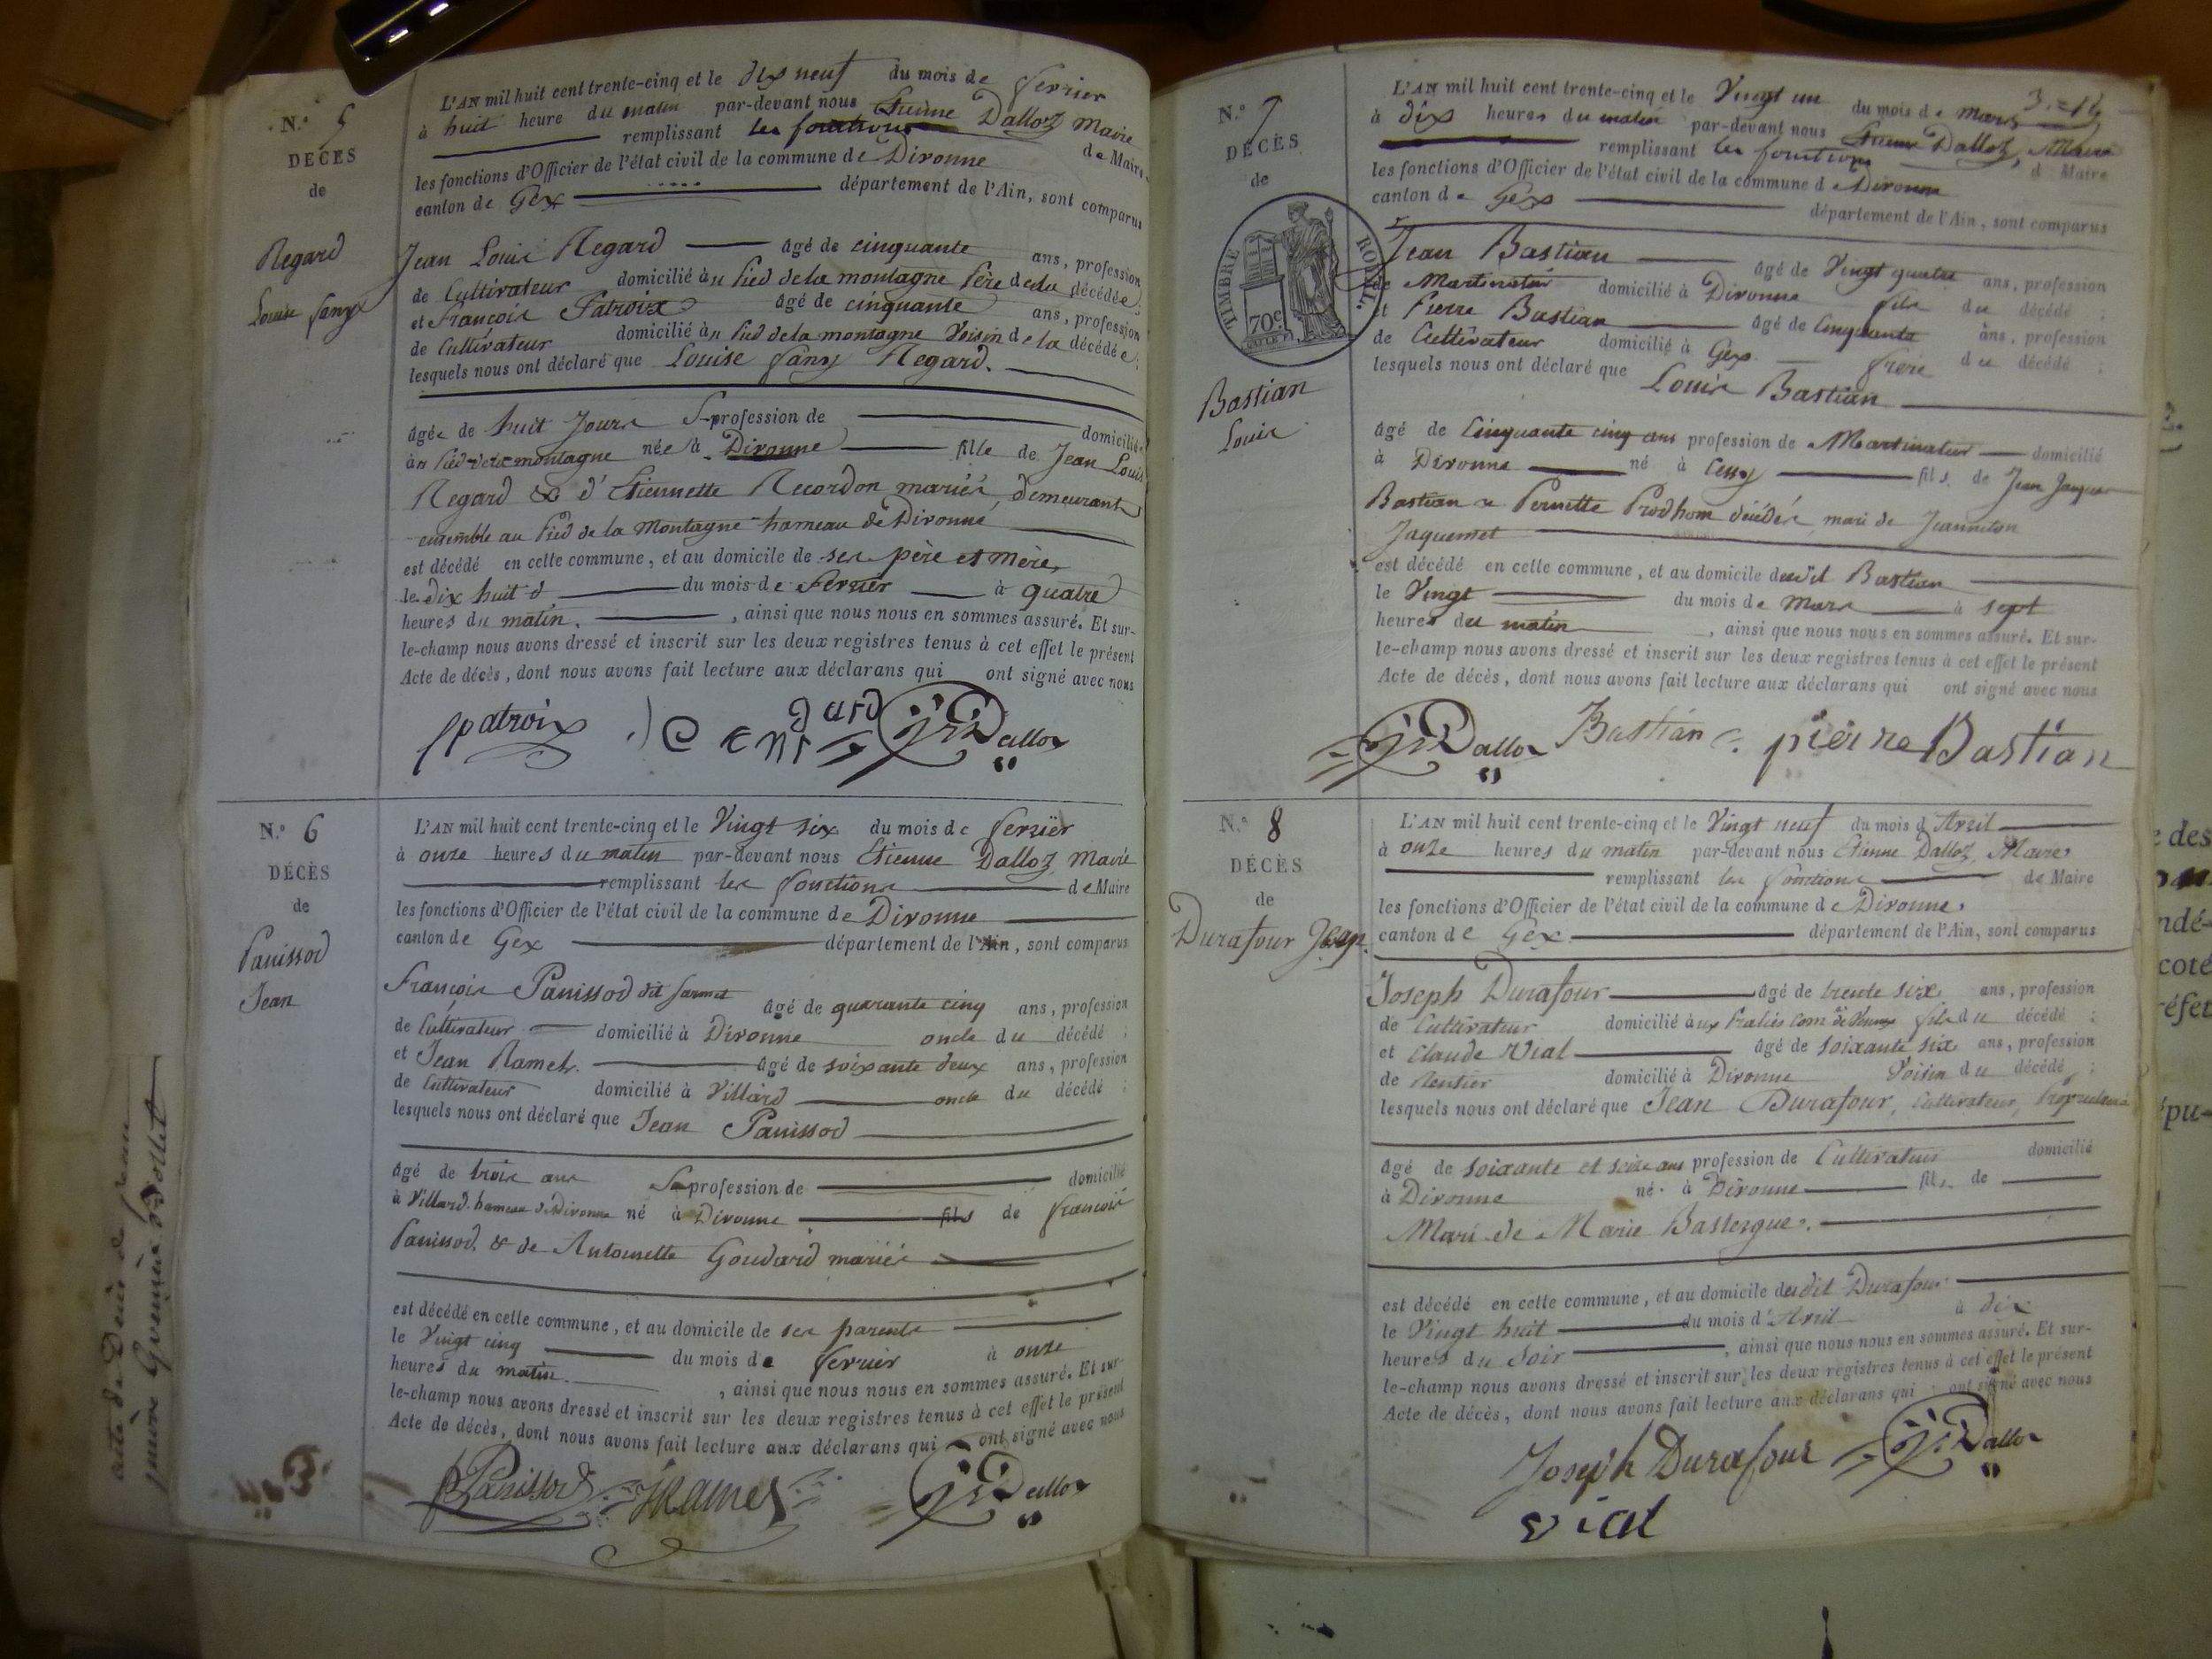 N.° 5
DÉCÈS
de
Regard
Louise fany
L'AN mil huit cent trente-cinq et le dix neuf du mois de fevrier
à huit heure du matin par-devant nous Etienne Dalloz Maire
remplissant les fonctions de Maire
les fonctions d'Officier de l'état civil de la commune de Divonne
canton de Gex département de l'Ain, sont comparus
Jean Louis Regard âgé de cinquante ans, profession
de Cultivateur domicilié au Pied de la montagne Père de la décédée
et François Patroix âgé de cinquante ans, profession
de Cultivateur domicilié au Pied de la montagne Voisin de la décédée ;
lesquels nous ont déclaré que Louise fany Regard.
âgée de huit Jours S profession de domiciliée
au Pied de la montagne née à Divonne fille de Jean Louis
Regard & d'Etiennette Recordon mariés, demeurant
ensemble au Pied de la Montagne hameau de Divonne
est décédé en cette commune, et au domicile de ses père et mère,
le dix huit d du mois de Fevrier à quatre
heures du matin. , ainsi que nous nous en sommes assuré. Et sur-
le-champ nous avons dressé et inscrit sur les deux registres tenus à cet effet le présent
Acte de décès, dont nous avons fait lecture aux déclarans qui ont signé avec nous
patroix Dalloz
N.° 6
DÉCÈS
de
Panissod
Jean
L'AN mil huit cent trente-cinq et le Vingt six du mois de fevrier
à onze heures du matin par-devant nous Etienne Dalloz, Maire
remplissant les fonctions de Maire
les fonctions d'Officier de l'état civil de la commune de Divonne
canton de Gex département de l'Ain, sont comparus
François Panissod dit âgé de quarante cinq ans, profession
de Cultivateur domicilié à Divonne oncle du décédé ;
et Jean Ramel. âgé de soixante deux ans, profession
de Cultivateur domicilié à Villard oncle du décédé ;
lesquels nous ont déclaré que Jean Panissod
âgé de trois ans S profession de domicilié
à Villard hameau de Divonne né à Divonne fils de François
Panissod, & de Antoinette Goudard mariés
est décédé en cette commune, et au domicile de ses parents
le Vingt cinq du mois de fevrier à onze
heures du matin. , ainsi que nous nous en sommes assuré. Et sur-
le-champ nous avons dressé et inscrit sur les deux registres tenus à cet effet le présent
Acte de décès, dont nous avons fait lecture aux déclarans qui ont signé avec nous
Panissod Ramel Dalloz
N.° 7
DÉCÈS
de
TIMBRE ROYAL.
70c
Bastian
Louis
L'AN mil huit cent trente-cinq et le Vingt un du mois de Mars
à dix heures du matin par-devant nous Etienne Dalloz, Maire
remplissant les fonctions d Maire
les fonctions d'Officier de l'état civil de la commune de Divonne
canton de Gex département de l'Ain, sont comparus
Jean Bastian âgé de Vingt quatre ans, profession
de Martinateur domicilié à Divonne fils du décédé ;
et Pierre Bastian âgé de Cinquante ans, profession
de Cultivateur domicilié à Gex. frère du décédé ;
lesquels nous ont déclaré que Louis Bastian
âgé de Cinquante cinq ans profession de Martinateur domicilié
à Divonne né à Cessy fils de Jean Jaques
Bastian & Pernette Prodhom décédés, mari de Jeanneton
Jaquemet
est décédé en cette commune, et au domicile dudit Bastian
le Vingt du mois de Mars à sept
heures du matin , ainsi que nous nous en sommes assuré. Et sur-
le-champ nous avons dressé et inscrit sur les deux registres tenus à cet effet le présent
Acte de décès, dont nous avons fait lecture aux déclarans qui ont signé avec nous
Dalloz Bastian pierre Bastian
N.° 8
DÉCÈS
de
Durafour Jean
L'AN mil huit cent trente-cinq et le Vingt neuf du mois d Avril
à onze heures du matin par-devant nous Etienne Dalloz, Maire
remplissant les fonctions de Maire
les fonctions d'Officier de l'état civil de la commune de Divonne,
canton de Gex. département de l'Ain, sont comparus
Joseph Durafour âgé de trente six ans, profession
de Cultivateur domicilié aux fils du décédé ;
et Claude Vial âgé de soixante six ans, profession
de Rentier domicilié à Divonne Voisin du décédé ;
lesquels nous ont déclaré que Jean Durafour, Cultivateur, Propriétaire
âgé de soixante et seize ans profession de Cultivateur domicilié
à Divonne né à Divonne fils de
Mari de Marie
est décédé en cette commune, et au domicile dudit Durafour
le Vingt huit du mois d'Avril à dix
heures du Soir , ainsi que nous nous en sommes assuré. Et sur-
le-champ nous avons dressé et inscrit sur les deux registres tenus à cet effet le présent
Acte de décès, dont nous avons fait lecture aux déclarans qui ont signé avec nous
Joseph Durafour Dalloz
vial